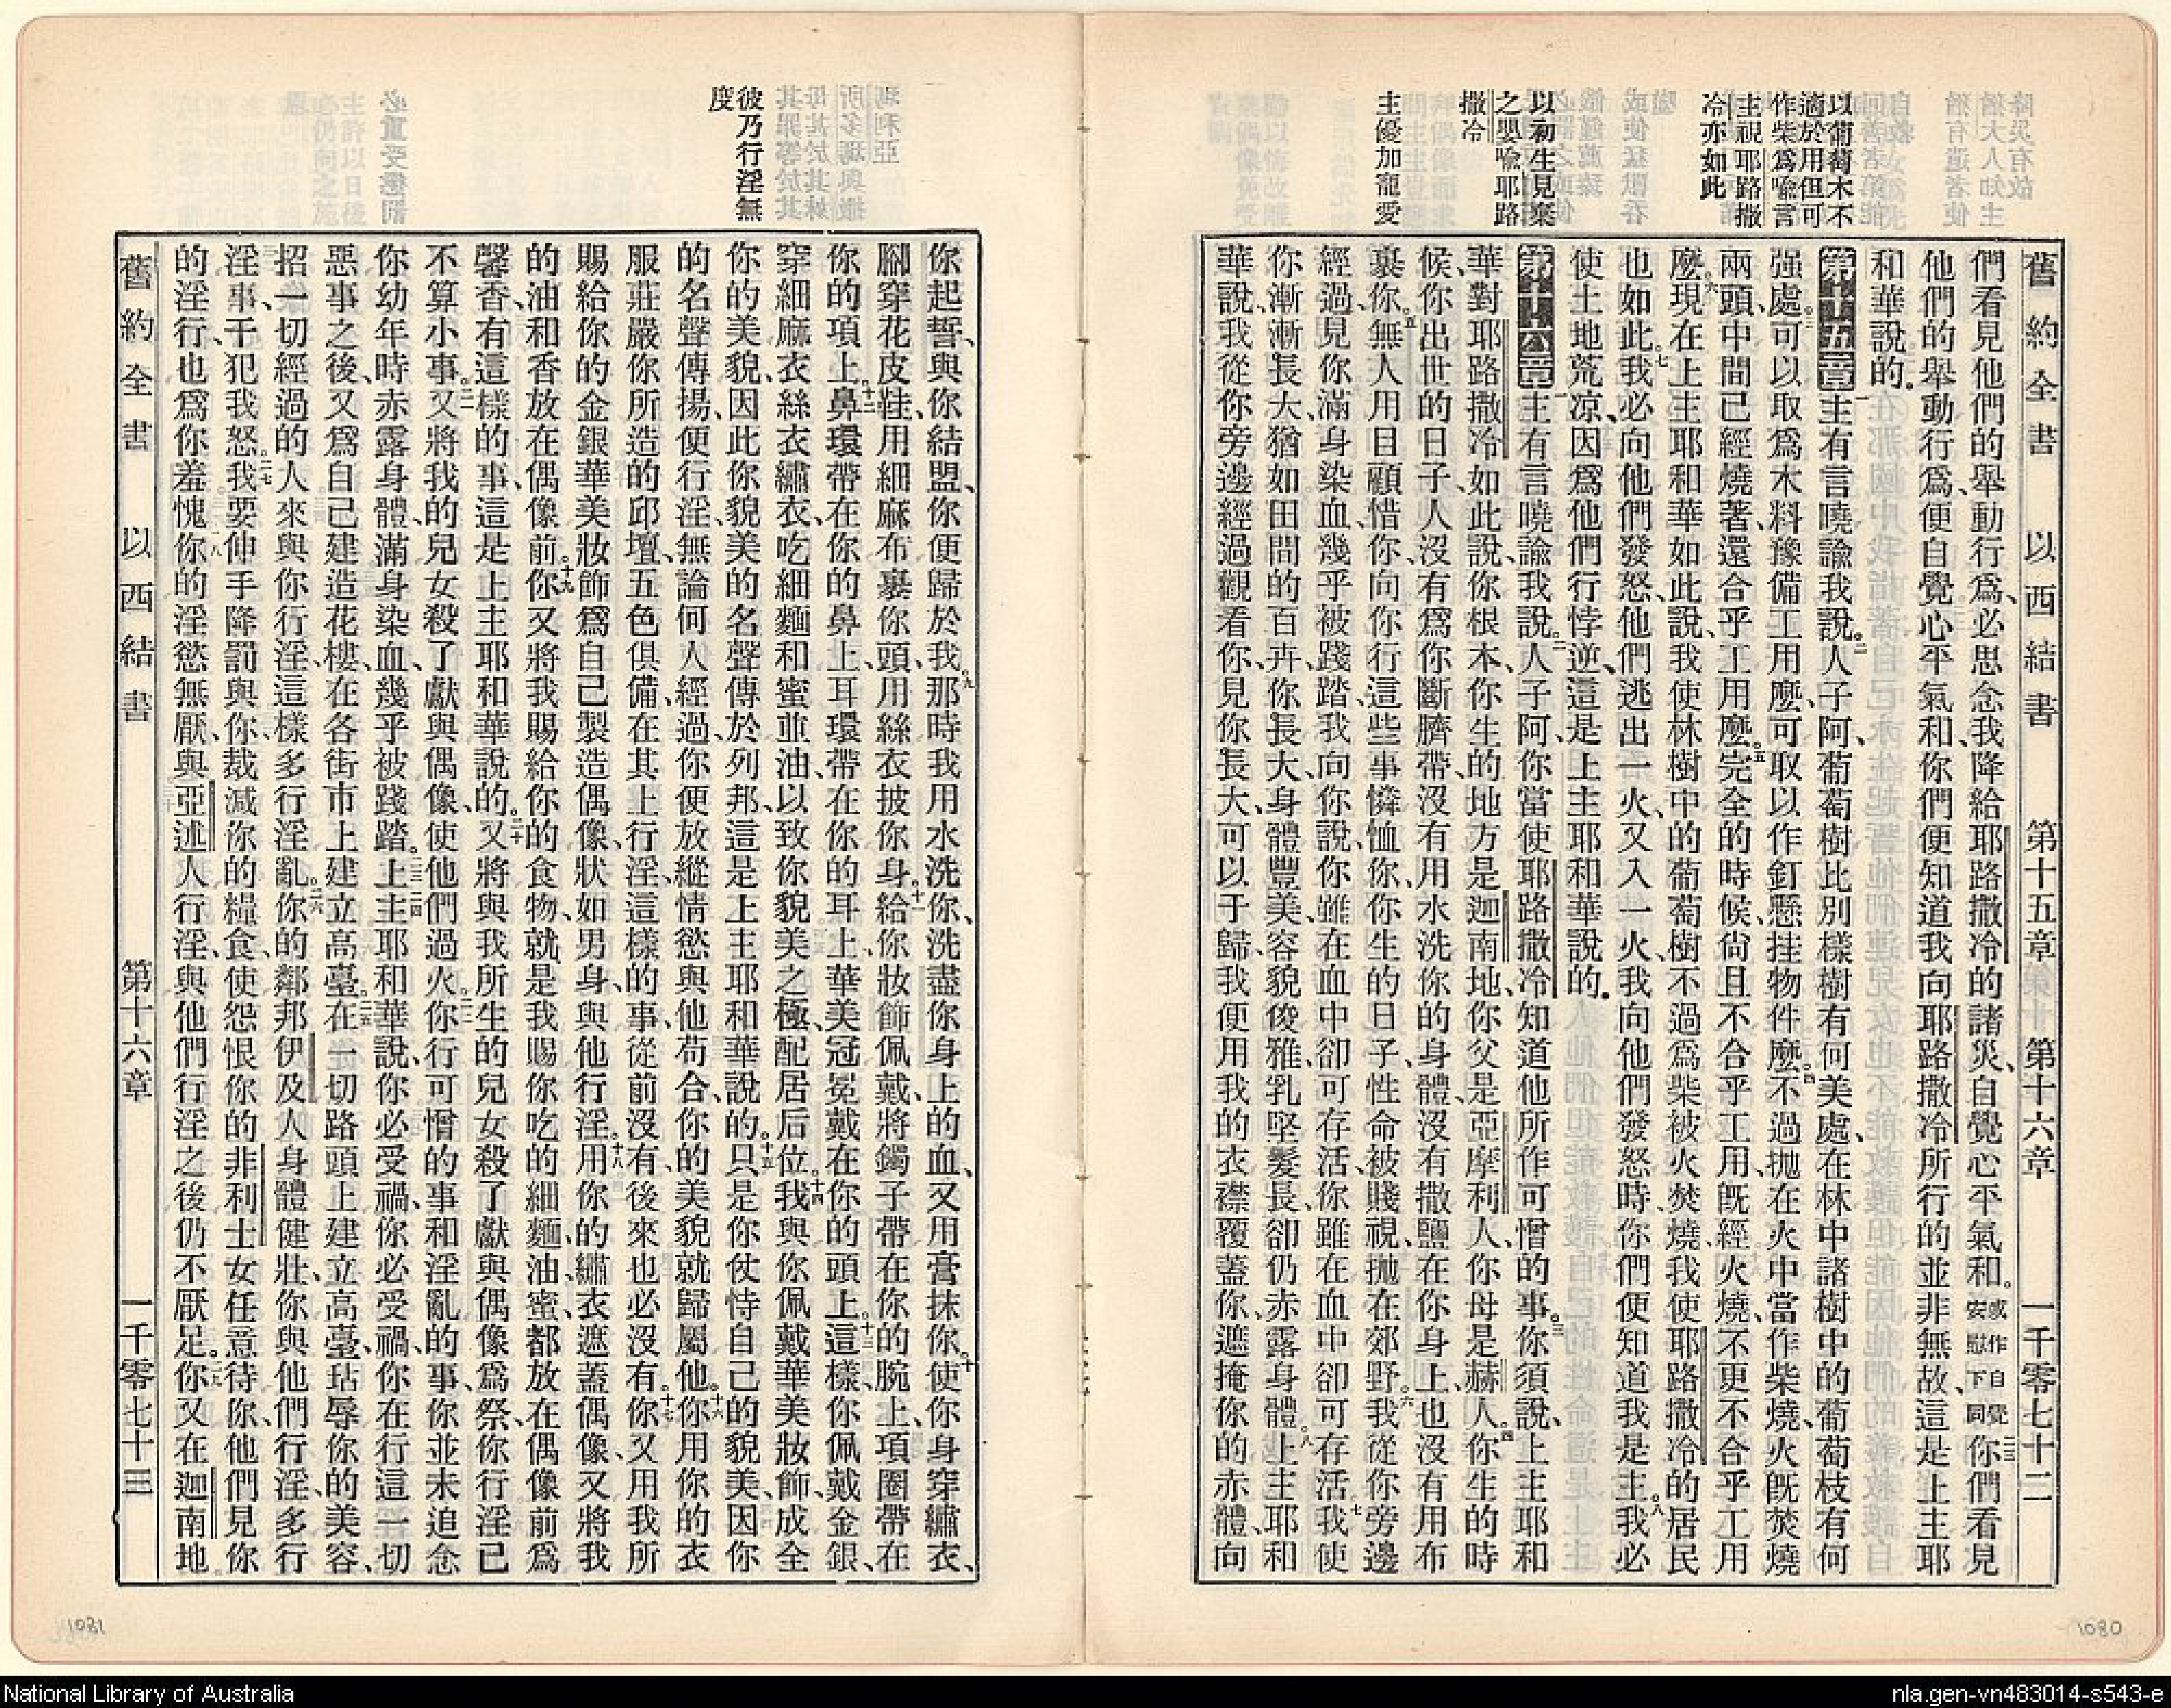 舊約全書 以西結書 第十五章 第十六章 一千零七十二
以葡萄木不
適於用但可
作柴爲喻言
主視耶路撒
冷亦如此
以初生見棄
之嬰喻耶路
撒冷
主優加寵愛
們看見他們的舉、動行爲、必思念我降給耶路撒冷的諸災、自覺心平氣和。或作自覺安慰下同二三你們看見
他們的舉動行爲、便自覺心平氣和、你們便知道我向耶路撒冷所行的並非無故、這是上主耶
和華說的.
第十五章一主有言曉諭我說。二人子阿、葡萄樹比別樣樹有何美處、在林中諸樹中的葡萄枝有何
强處。三可以取爲木料豫備工用麼、可取以作釘懸挂物件麼。四不過拋在火中當作柴燒、火旣焚燒
兩頭、中間已經燒著、還合乎工用麼。五完全的時候、尙且不合乎工用、旣經火燒、不更不合乎工用
麼。六現在上主耶和華如此說、我使林樹中的葡萄樹不過爲柴被火焚燒、我使耶路撒冷的居民
也如此。七我必向他們發怒、他們逃出一火、又入一火、我向他們發怒時、你們便知道我是主。八我必
使土地荒凉、因爲他們行悖逆、這是上主耶和華說的.
第十六章一主有言曉諭我說。二人子阿、你當使耶路撒冷知道他所作可憎的事。三你須說、上主耶和
華對耶路撒冷如此說、你根本、你生的地方是迦南地、你父是亞摩利人、你母是赫人。四你生的時
候、你出世的日子、人沒有爲你斷臍帶、沒有用水洗你的身體、沒有撒鹽在你身上、也沒有用布
裹你。五無人用目顧惜你、向你行這些事憐恤你、你生的日子、性命被賤視、拋在郊野。六我從你旁邊
經過、見你滿身染血、幾乎被踐踏、我向你說、你雖在血中卻可存活、你雖在血中卻可存活。七我使
你漸漸長大、猶如田間的百卉、你長大、身體豐美、容貌俊雅、乳堅髮長、卻仍赤露身體。八上主耶和
華說、我從你旁邊經過觀看你、見你長大、可以于歸、我便用我的衣襟覆蓋你、遮掩你的赤體、向
舊約全書 以西結書 第十六章 一千零七十三
彼乃行淫無
度
你起誓、與你結盟、你便歸於我。九那時我用水洗你、洗盡你身上的血、又用膏抹你。十使你身穿繡衣、
腳穿花皮鞋、用細麻布裹你頭、用絲衣披你身。十一給你妝飾佩戴、將鐲子帶在你的腕上、項圈帶在
你的項上。十二鼻環帶在你的鼻上、耳環帶在你的耳上、華美冠冕戴在你的頭上。十三這樣、你佩戴金銀、
穿細麻衣、絲衣、繡衣、吃細麵和蜜並油、以致你貌美之極、配居后位。十四我與你佩戴華美妝飾、成全
你的美貌、因此你貌美的名聲傳於列邦、這是上主耶和華說的。十五只是你仗恃自己的貌美、因你
的名聲傳揚、便行淫、無論何人經過、你便放縱情慾與他苟合、你的美貌就歸屬他。十六你用你的衣
服莊嚴你所造的邱壇、五色俱備、在其上行淫、這樣的事、從前沒有、後來也必沒有。十七你又用我所
賜給你的金銀華美妝飾、爲自己製造偶像、狀如男身、與他行淫。十八用你的繡衣遮蓋偶像、又將我
的油和香放在偶像前。十九你又將我賜給你的食物、就是我賜你吃的細麵、油、蜜、都放在偶像前爲
馨香、有這樣的事、這是上主耶和華說的。二十又將與我所生的兒女殺了獻與偶像爲祭、你行淫已
不算小事。二一又將我的兒女殺了獻與偶像、使他們過火。二二你行可憎的事和淫亂的事、你並未追念
你幼年時赤露身體、滿身染血、幾乎被踐踏。二三二四上主耶和華說、你必受禍、你必受禍、你在行這一切
惡事之後、又爲自己建造花樓、在各街市上建立高臺。二五在一切路頭上建立高臺、玷辱你的美容、
招一切經過的人來與你行淫、這樣多行淫亂。二六你的鄰邦伊及人身體健壯、你與他們行淫、多行
淫事、干犯我怒。二七我要伸手降罰與你、裁減你的糧食、使怨恨你的非利士女任意待你、他們見你
的淫行、也爲你羞愧。二八你的淫慾無厭、與亞述人行淫、與他們行淫之後仍不厭足。二九你又在迦南地、
1081
1080
National Library of Australia
nla.gen-vn483014-s543-e